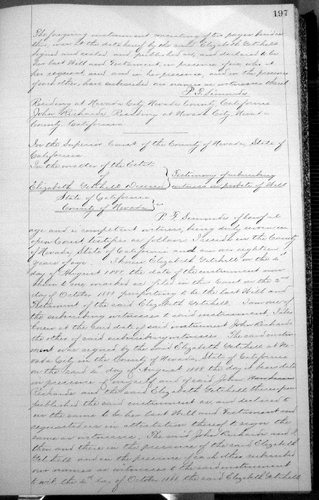 197
The foregoing instrument consisting of two pages besides
this, was at the date hereof by the said Elizabeth
signed and sealed and published as, and declared to be
her last Will and Testament, in presence of us, who at
her request and in her presence, and in the presence
of each other, have subscribed our names as witnesses thereto
P. F. Simonds
Residing at Nevada City Nevada County California
John Richards Residing at Nevada City Nevada
County California
In the Superior Court of the County of Nevada, State of
California
In the matter of the Estate
of
Elizabeth Deceased
Testimony of subscribing
witness on probate of Will
State of California
County of Nevada ss
P. F. Simonds of lawful
age and a competent witness, being duly sworn in
open Court testifies as follows I reside in the County
of Nevada State of California and am
years of age I knew Elizabeth on the
day of August 1888, the date of the instrument now
shown to me marked as filed in this Court on the 2nd
day of October 1888 purporting to be the last Will and
Testament of the said Elizabeth I am one of
the subscribing witnesses to said instrument, I also
knew at the said date of said instrument John Richards
the other of said subscribing witnesses. The said instru-
ment was signed by the said Elizabeth at Ne-
vada City in the County of Nevada, State of California
on the said day of August 1888 the day it bears date
in presence of myself and of said John
Richards and the said Elizabeth thereupon
published the said instrument as, and declared to
us the same to be her last Will and Testament and
requested us in attestation thereof to sign the
same as witnesses. The said John Richards and I
then and there in the presence of the said Elizabeth
and in the presence of each other subscribed
our names as witnesses to the said instrument
day of October 1888 the said Elizabeth